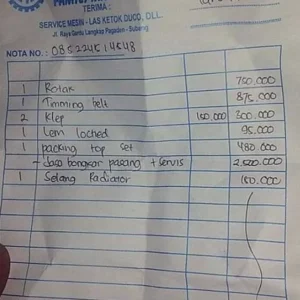 TERIMA :
SERVICE MESIN - LAS KETOK DUCO, DLL.
Jl. Raya Gantu Langkap Pagaden - Subang
NOTA NO. : 085224514548
1 Rotak 750.000
1 Timming belt 875.000
2 Klep 150.000 300.000
1 Lem loched 95.000
1 packing top set 480.000
- Jasa bongkar pasang + servis 2.500.000
1 Selang Radiator 150.000